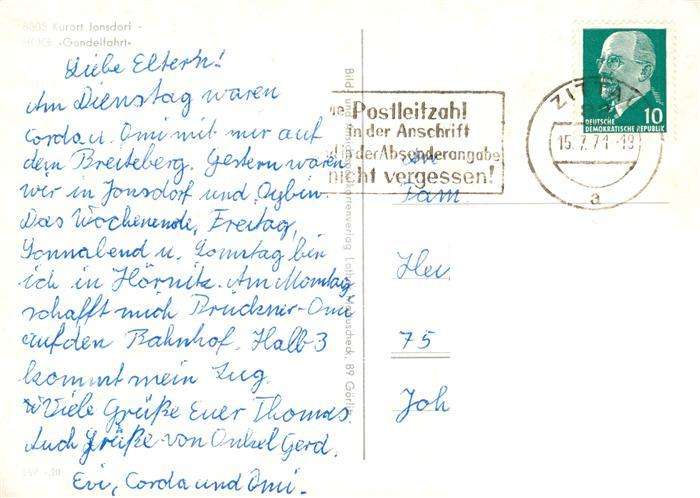 8805 Kurort Jonsdorf -
HOGE »Gondelfahrt«
Liebe Eltern!
Am Dienstag waren
Corda u. Omi mit mir auf
dem Breiteberg. Gestern waren
wir in Jonsdorf und Oybin.
Das Wochenende, Freitag,
Sonnabend u. Sonntag bin
ich in Hörnitz. Am Montag
schafft mich Brückner-Omi
auf den Bahnhof. Halb 3
kommt mein Zug.
Viele Grüße Euer Thomas.
Auch Grüße von Onkel Gerd.
Evi, Corda und Omi.
Bild und
89 Görlitz
Postleitzahl
in der Anschrift
in der Absenderangabe
nicht vergessen!
15.7.71-19
a
10
DEUTSCHE
DEMOKRATISCHE REPUBLIK
Fam.
Hei
75
Joh